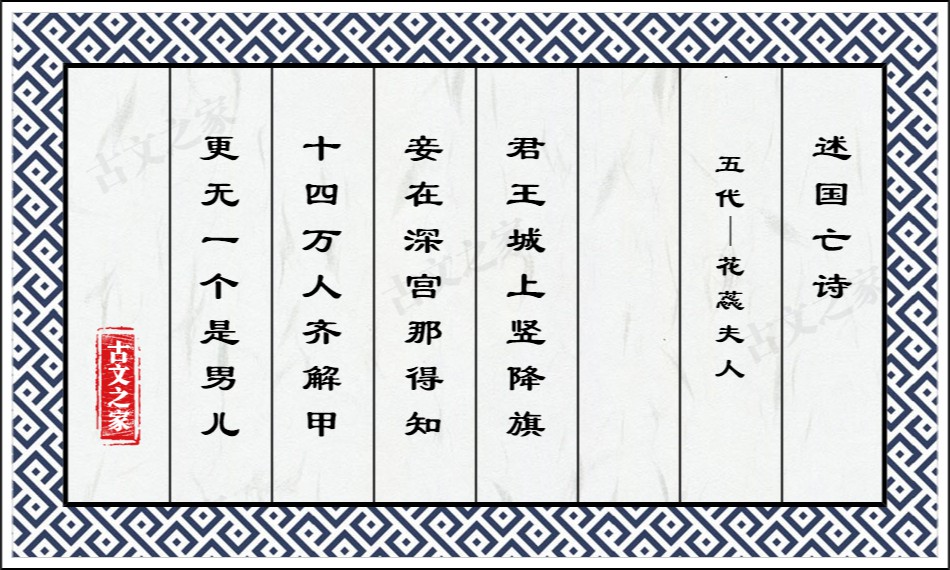 述国亡诗
五代—花蕊夫人
君王城上竖降旗
妾在深宫那得知
十四万人齐解甲
更无一个是男儿
古文之家
古文之家
古文之家
古文之家